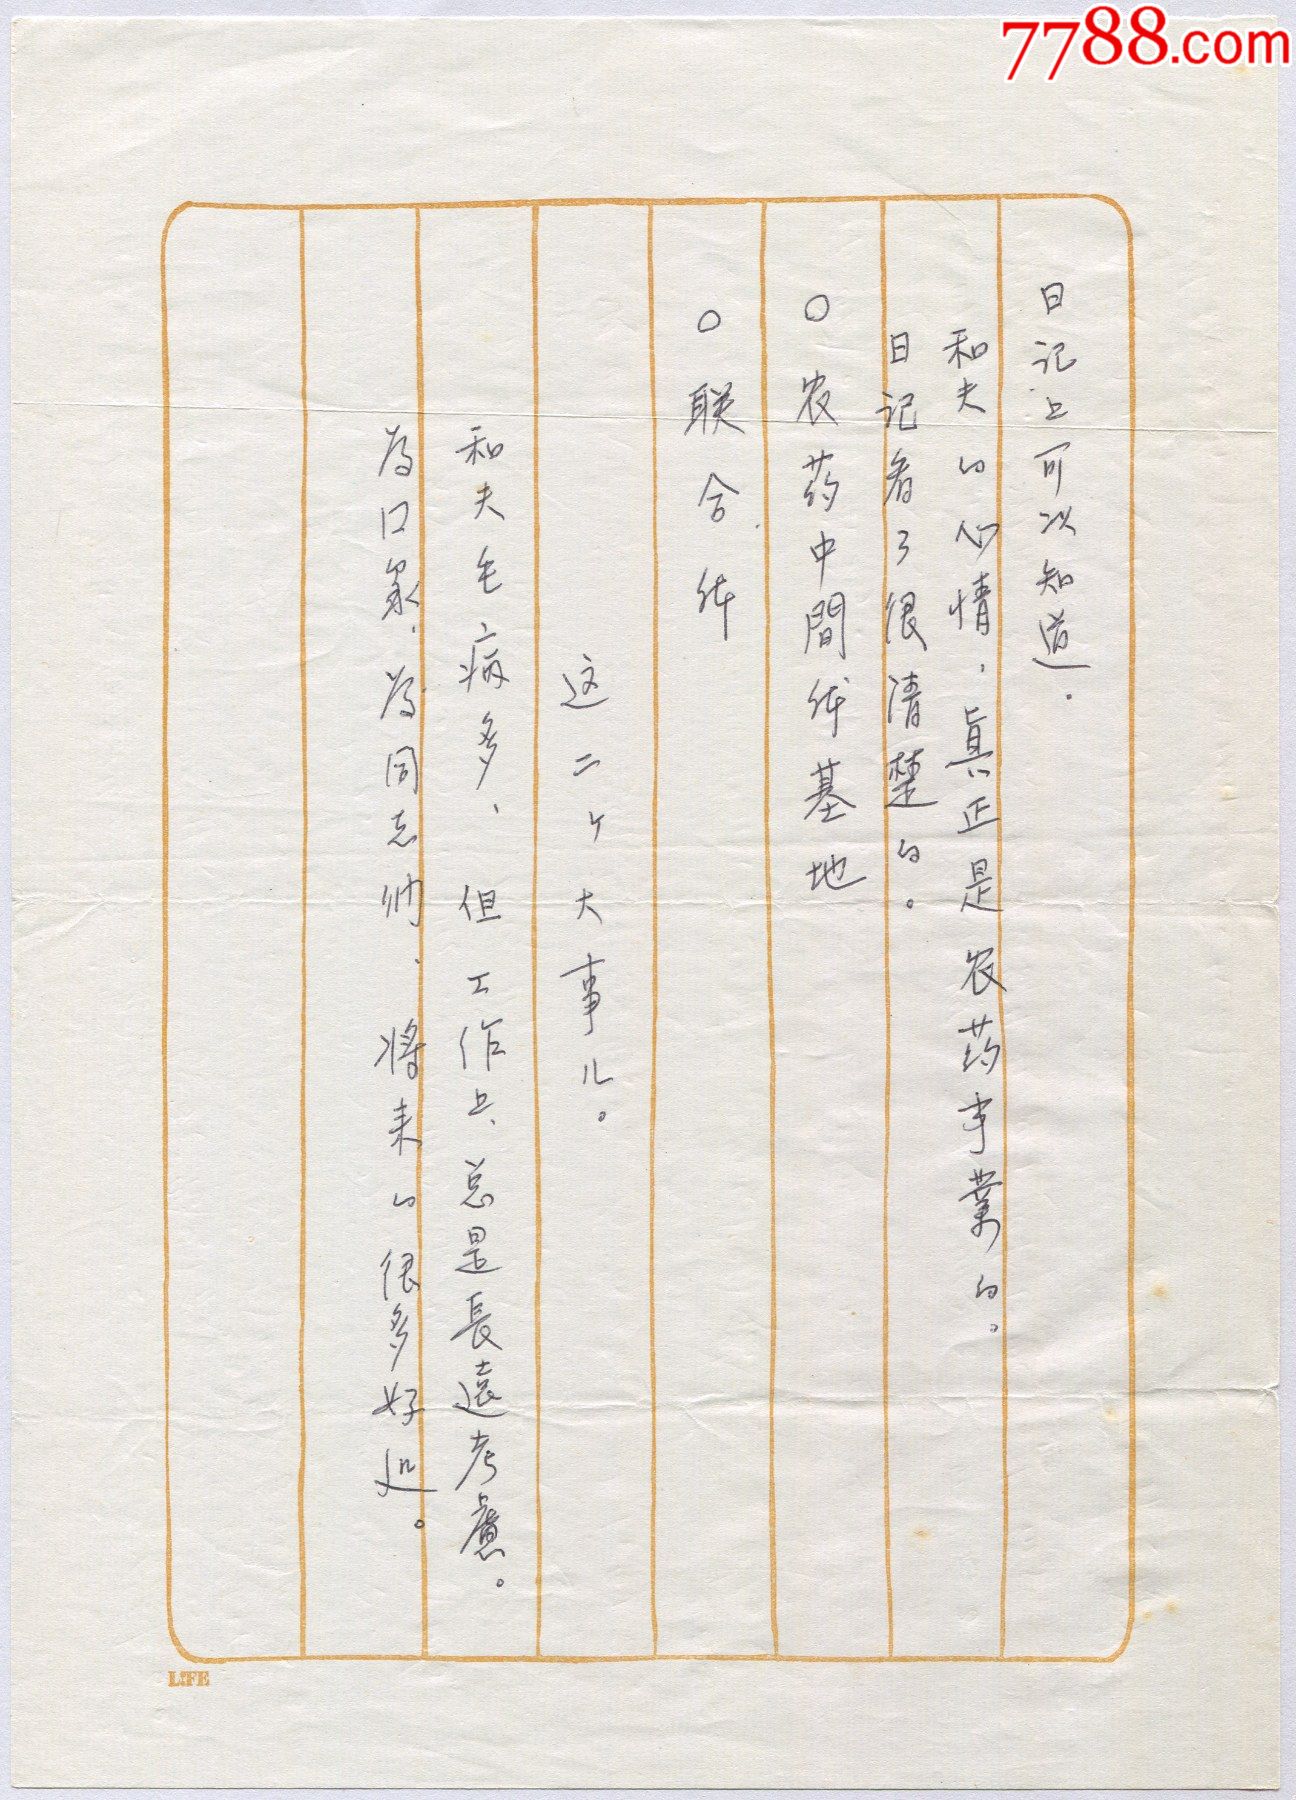 7788.com
日记上可以知道.
和夫的心情.真正是农药事业的。
日记看了很清楚的。
○农药中間体基地
○联合体
这二个大事儿。
和夫毛病多、但工作上、总是長遠考慮。
为口家.为同志们、将来的很多好处。
LIFE